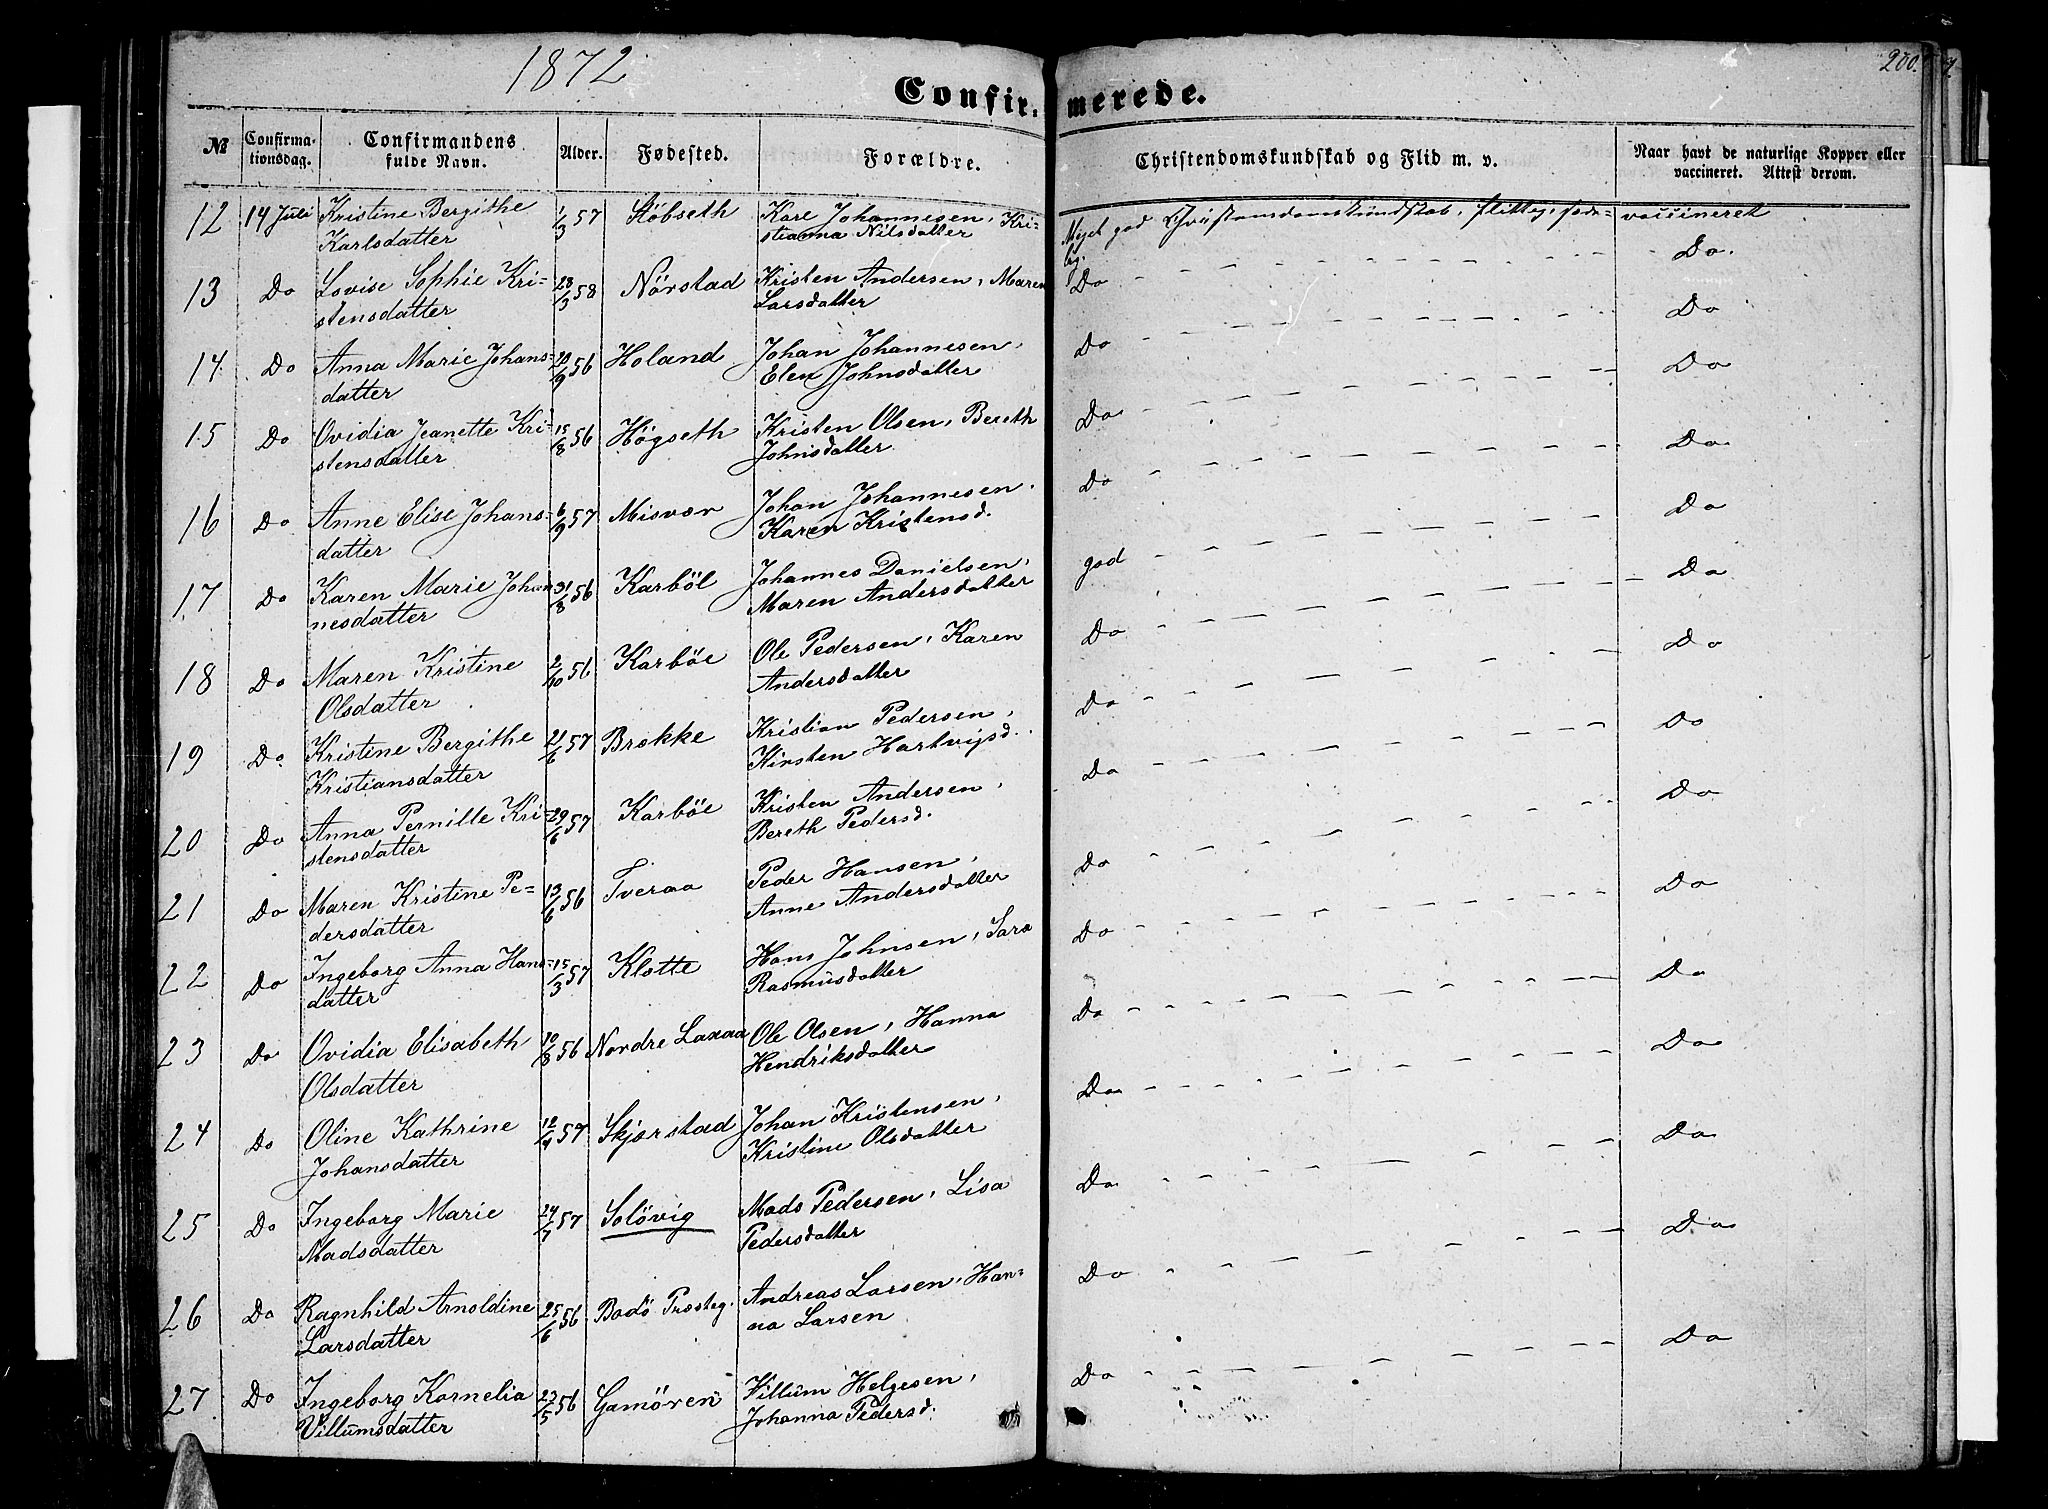 1872
200.
Confir-merede.
№ Confirma-tionsdag. Confirmandens fulde Navn. Alder. Fødested. Forældre. Christendomskundskab og Flid m. v. Naar havt de naturlige Kopper eller vaccineret. Attest derom.
12 14 Juli Kristine Bergithe 1/3 57 Støbseth Kare Johannesen, Kri- Meget god Christendomskundskab, flittig, sæde- vaccineret
Karlsdatter stianna Nilsdatter lig. Do.
13 Do Lovise Sophie Kri- 28/3 58 Nørstad Kristen Andersen, Maren Do
stensdatter Larsdatter Do
14. Do Anna Marie Johans- 20/9 56 Holand Johan Johannesen, Do
datter Elen Johnsdatter Do
15 Do Ovidia Jeanette Kri- 15/8 56 Høgseth Kristen Olsen, Bereth Do
stensdatter Johnsdatter Do
16 Do Anne Elise Johans- 6/9 57 Misvær Johan Johannesen. Do
datter Karen Kristensd. Do
17 Do Karen Marie Johan- 31/8 56 Karbøl Johannes Danielsen, god
nesdatter Maren Andersdatter Do
18 Do Maren Kristine 2/10 56 Karbøe Ole Pedersen, Karen Do
Olsdatter Andersdatter Do
19 Do Kristine Bergithe 21/6 57 Brekke Kristian Pedersen, Do
Kristiansdatter Kirsten Hartvigsd. Do
20 Do Anna Pernille Kri- 29/6 57 Karbøe Kristen Andersen, Do
stensdatter Bereth Pedersd. Do
21 Do Maren Kristine Pe- 13/6 56 Tveraa Peder Hansen, Do
dersdatter Anne Andersdatter Do
22 Do Ingeborg Anna Hans- 15/3 57 Kløtte Hans Johnsen, Sara Do
datter Rasmusdatter Do
23 Do Ovidia Elisabeth 10/8 56 Nordre Laxaa Ole Olsen, Hanna Do
Olsdatter Hendriksdatter Do
24 Do Oline Kathrine 12/4 57 Skjerstad Johan Kristensen, Do
Johansdatter Kristine Olsdatter Do
25 Do Ingeborg Marie 24/7 57 Soløvig Mads Pedersen, Lisa Do
Madsdatter Pedersdatter Do
26 Do Ragnhild Arnoldine 25/6 56 Bodø Præsteg. Andreas Larsen, Han- Do
Larsdatter na Larsen Do
27 Do Ingeborg Kornelia 23/5 56 Gamøren Villum Helgesen, Do
Villumsdatter Johanna Pedersd.